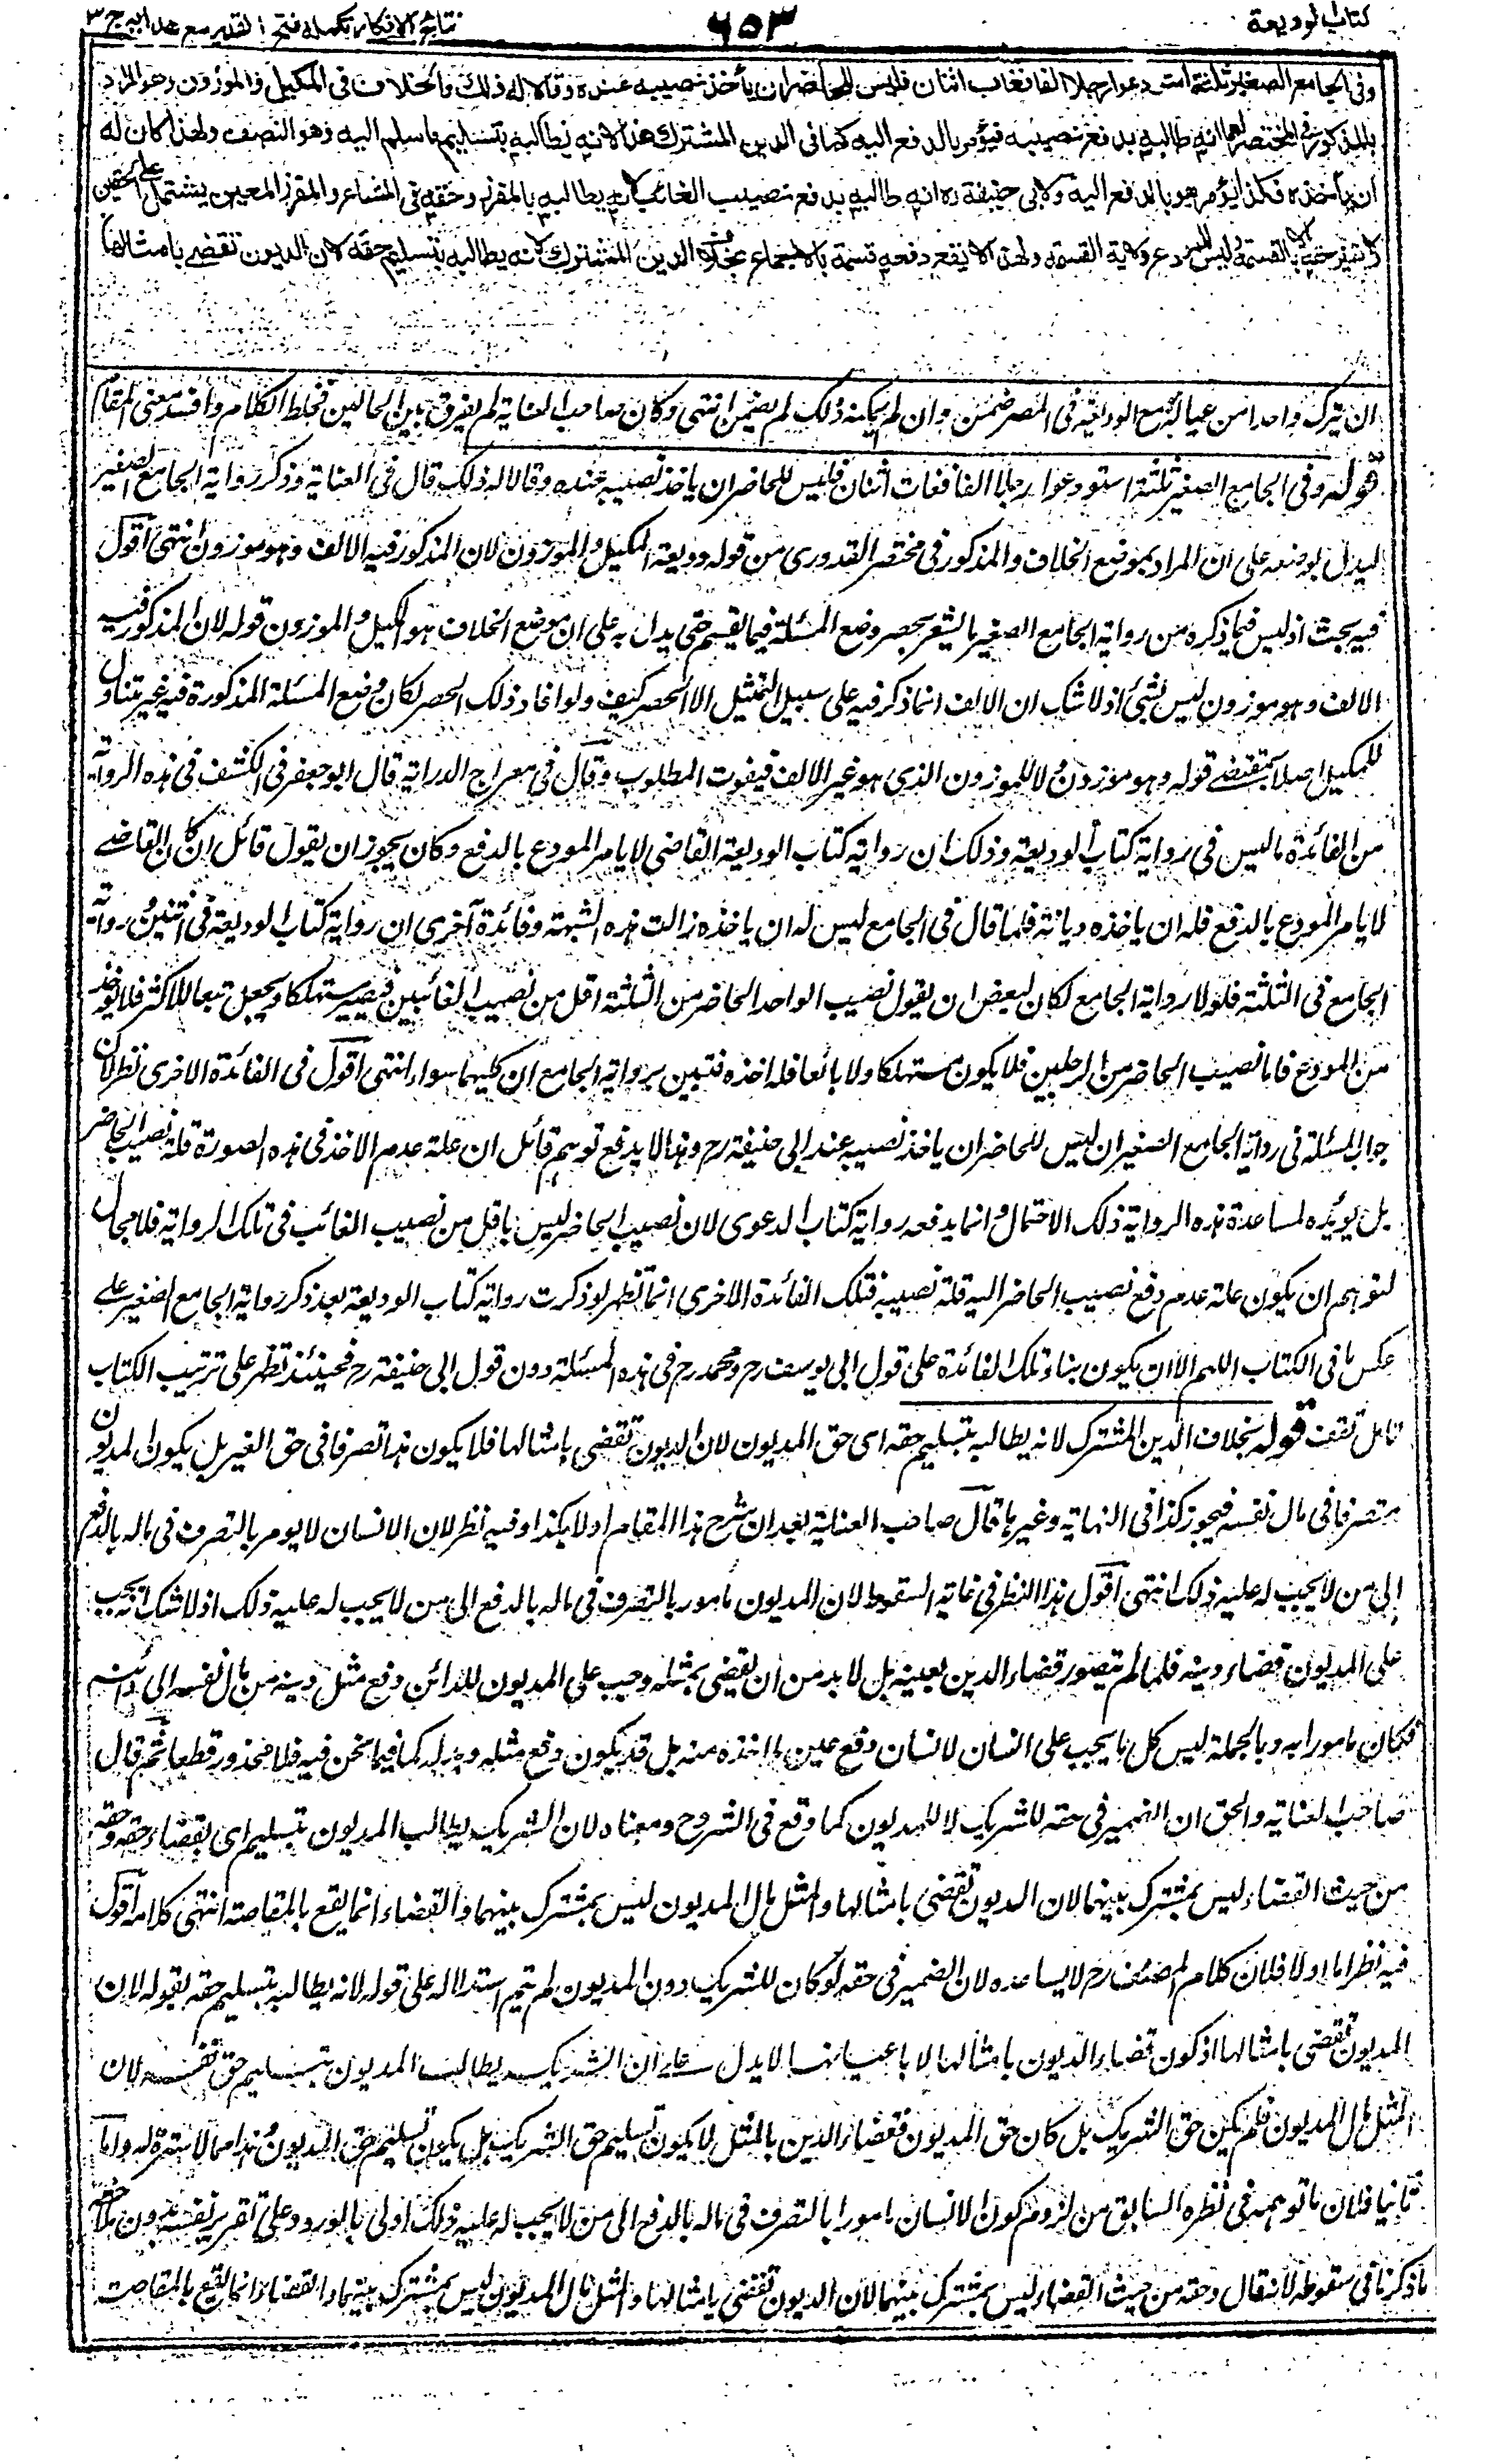 كتاب الوديعة
٦٥٣
نتائج الافكار تكمله فتح القدير مع هدايه ج ٣
وفى الجامع الصغير ثلثة استودعوا رجلا الفا فغاب اثنان فليس للحاضران يأخذ نصيبه عنده وقالا له ذلك والخلاف فى المكيل والموزون وهو المراد
بالمذكور فى المختصر لهما انه طالبه بدفع نصيبه فيؤمر بالدفع اليه كما فى الدين المشترك هذا لانه يطالبه بتسليم ما سلم اليه وهو النصف ولهذا كان له
ان يأخذه فكذا يؤمر هو بالدفع اليه ولابى حنيفة ره انه طالبه بدفع نصيب الغائب لانه يطالبه بالمفرز وحقه فى المشاع والمفرز المعين يشتمل على الحقين
ولا يتميز حقه الا بالقسمة وليس للمودع ولاية القسمة ولهذا لا يقع دفعه قسمة بالاجماع بخلاف الدين المشترك لانه يطالبه بتسليم حقه لان الديون تقضى بامثالها
ان يترك واحدا من عياله مع الوديعة فى المصر ضمن وان لم يمكنه ذلك لم يضمن انتهى وكان صاحب العناية لم يفرق بين الحالين فخلط الكلام وافسد معنى المقام
قوله وفى الجامع الصغير ثلثة استودعوا رجلا الفا فغاب اثنان فليس للحاضران ياخذ نصيبه عنده وقالا له ذلك قال فى العناية وذكر رواية الجامع الصغير
ليدل بوضعه على ان المراد بموضع الخلاف والمذكور فى مختصر القدورى من قوله وديعة المكيل والموزون لان المذكور فيه الالف وهو موزون انتهى اقول
فيه بحث اذ ليس فيما ذكره من رواية الجامع الصغير ما يشعر بحصر وضع المسئلة فيما يقسم حتى يدل به على ان موضع الخلاف هو المكيل والموزون قوله لان المذكور فيه
الالف وهو موزون ليس بشئ اذ لا شك ان الالف انما ذكر فيه على سبيل التمثيل لا الحصر كيف ولو افاد ذلك الحصر لكان وضع المسئلة المذكورة فيه غير متناول
للمكيل اصلا بمقتضے قوله وهو موزون ولا للموزون الذى هو غير الالف فيفوت المطلوب وقال فى معراج الدراية قال ابو جعفر فى الكشف فى هذه الرواية
من الفائدة ما ليس فى رواية كتاب الوديعة وذلك ان رواية كتاب الوديعة القاضى لا يامر المودع بالدفع وكان يجوز ان يقول قائل ان كان القاضے
لا يامر المودع بالدفع فله ان ياخذه ديانة فلما قال فى الجامع ليس له ان ياخذه زالت هذه الشبهة وفائدة اخرى ان رواية كتاب الوديعة فى اثنين ورواية
الجامع فى الثلثة فلولا رواية الجامع لكان لبعض ان يقول نصيب الواحد الحاضر من الثلثة اقل من نصيب الغائبين فيصير مستهلكا ويجعل تبعا للاكثر فلا يؤخذ
من المودع فاما نصيب الحاضر من الرجلين فلا يكون مستهلكا ولا تابعا فله اخذه فتبين برواية الجامع ان كليهما سواء انتهى اقول فى الفائدة الاخرى نظر لان
جواب المسئلة فى رواية الجامع الصغير ان ليس للحاضر ان ياخذ نصيبه عند ابى حنيفة رح وهذا لا يدفع توهم قائل ان علة عدم الاخذ فى هذه الصورة قلة نصيب الحاضر
بل يؤيده لمساعدة هذه الرواية ذلك الاحتمال وانما يدفعه رواية كتاب الدعوى لان نصيب الحاضر ليس باقل من نصيب الغائب فى تلك الرواية فلا مجال
لتوهم ان يكون علة عدم دفع نصيب الحاضر اليه قلة نصيبه فتلك الفائدة الاخرى انما تظهر لو ذكرت رواية كتاب الوديعة بعد ذكر رواية الجامع الصغير على
عكس ما فى الكتاب اللهم الا ان يكون بناء تلك الفائدة على قول ابى يوسف رح ومحمد رح فى هذه المسئلة دون قول ابى حنيفة رح فحينئذ تظهر على ترتيب الكتاب
تامل تقف قوله بخلاف الدين المشترك لانه يطالبه بتسليم حقه اى حق المديون لان الديون تقضى بامثالها فلا يكون هذا تصرفا فى حق الغير بل يكون المديون
متصرفا فى مال نفسه فيجوز كذا فى النهاية وغيرها قال صاحب العناية بعد ان شرح هذا المقام اولا هكذا وفيه نظر لان الانسان لا يومر بالتصرف فى ماله بالدفع
الى من لا يجب له عليه ذلك انتهى اقول هذا النظر فى غاية السقوط لان المديون مامور بالتصرف فى ماله بالدفع الى من لا يجب له عليه ذلك اذ لا شك انه يجب
على المديون قضاء دينه فلما لم يتصور قضاء الدين بعينه بل لا بد من ان يقضى بمثله وجب على المديون للدائن دفع مثل دينه من مال نفسه الى دائنه
فكان مامورا به وبالجملة ليس كل ما يجب على انسان لانسان دفع عين ما اخذه منه بل قد يكون دفع مثله وبدله كما فيما نحن فيه فلا محذور قطعا ثم قال
صاحب العناية والحق ان الضمير فى حقه للشريك لا للمديون كما وقع فى الشروح ومعناه لان الشريك يطالب المديون بتسليم اى بقضاء حقه وحقه
من حيث القضاء ليس بمشترك بينهما لان الديون تقضى بامثالها والمثل مال المديون ليس بمشترك بينهما والقضاء انما يقع بالمقاصة انتهى كلامه اقول
فيه نظر اما اولا فلان كلام المصنف رح لا يساعده لان الضمير فى حقه لو كان للشريك دون المديون لم يتم استدلاله على قوله لانه يطالبه بتسليم حقه بقوله لان
الديون تقضى بامثالها اذ كون قضاء الديون بامثالها لا باعيانها لا يدل على ان الشريك يطالب المديون بتسليم حق نفسه لان
المثل مال المديون فلم يكن حق الشريك بل كان حق المديون فقضاء الدين بالمثل لا يكون تسليم حق الشريك بل يكون تسليم حق المديون وهذا مما لا سترة له واما
ثانيا فلان ما توهمه فى نظره السابق من لزوم كون الانسان مامورا بالتصرف فى ماله بالدفع الى من لا يجب له عليه ذلك اولى بالورود على تقرير نفسه بدون ملاحظة
ما ذكرنا فى سقوطه لانه قال وحقه من حيث القضاء ليس بمشترك بينهما لان الديون تقضى بامثالها والمثل مال المديون ليس بمشترك بينهما والقضاء انما يقع بالمقاصة